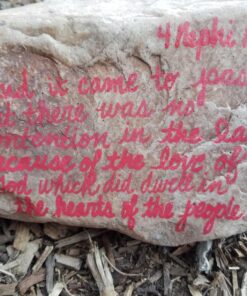 4 Nephi
And it came to pass
that there was no
contention in the la
because of the love of
God which did dwell in
the hearts of the people